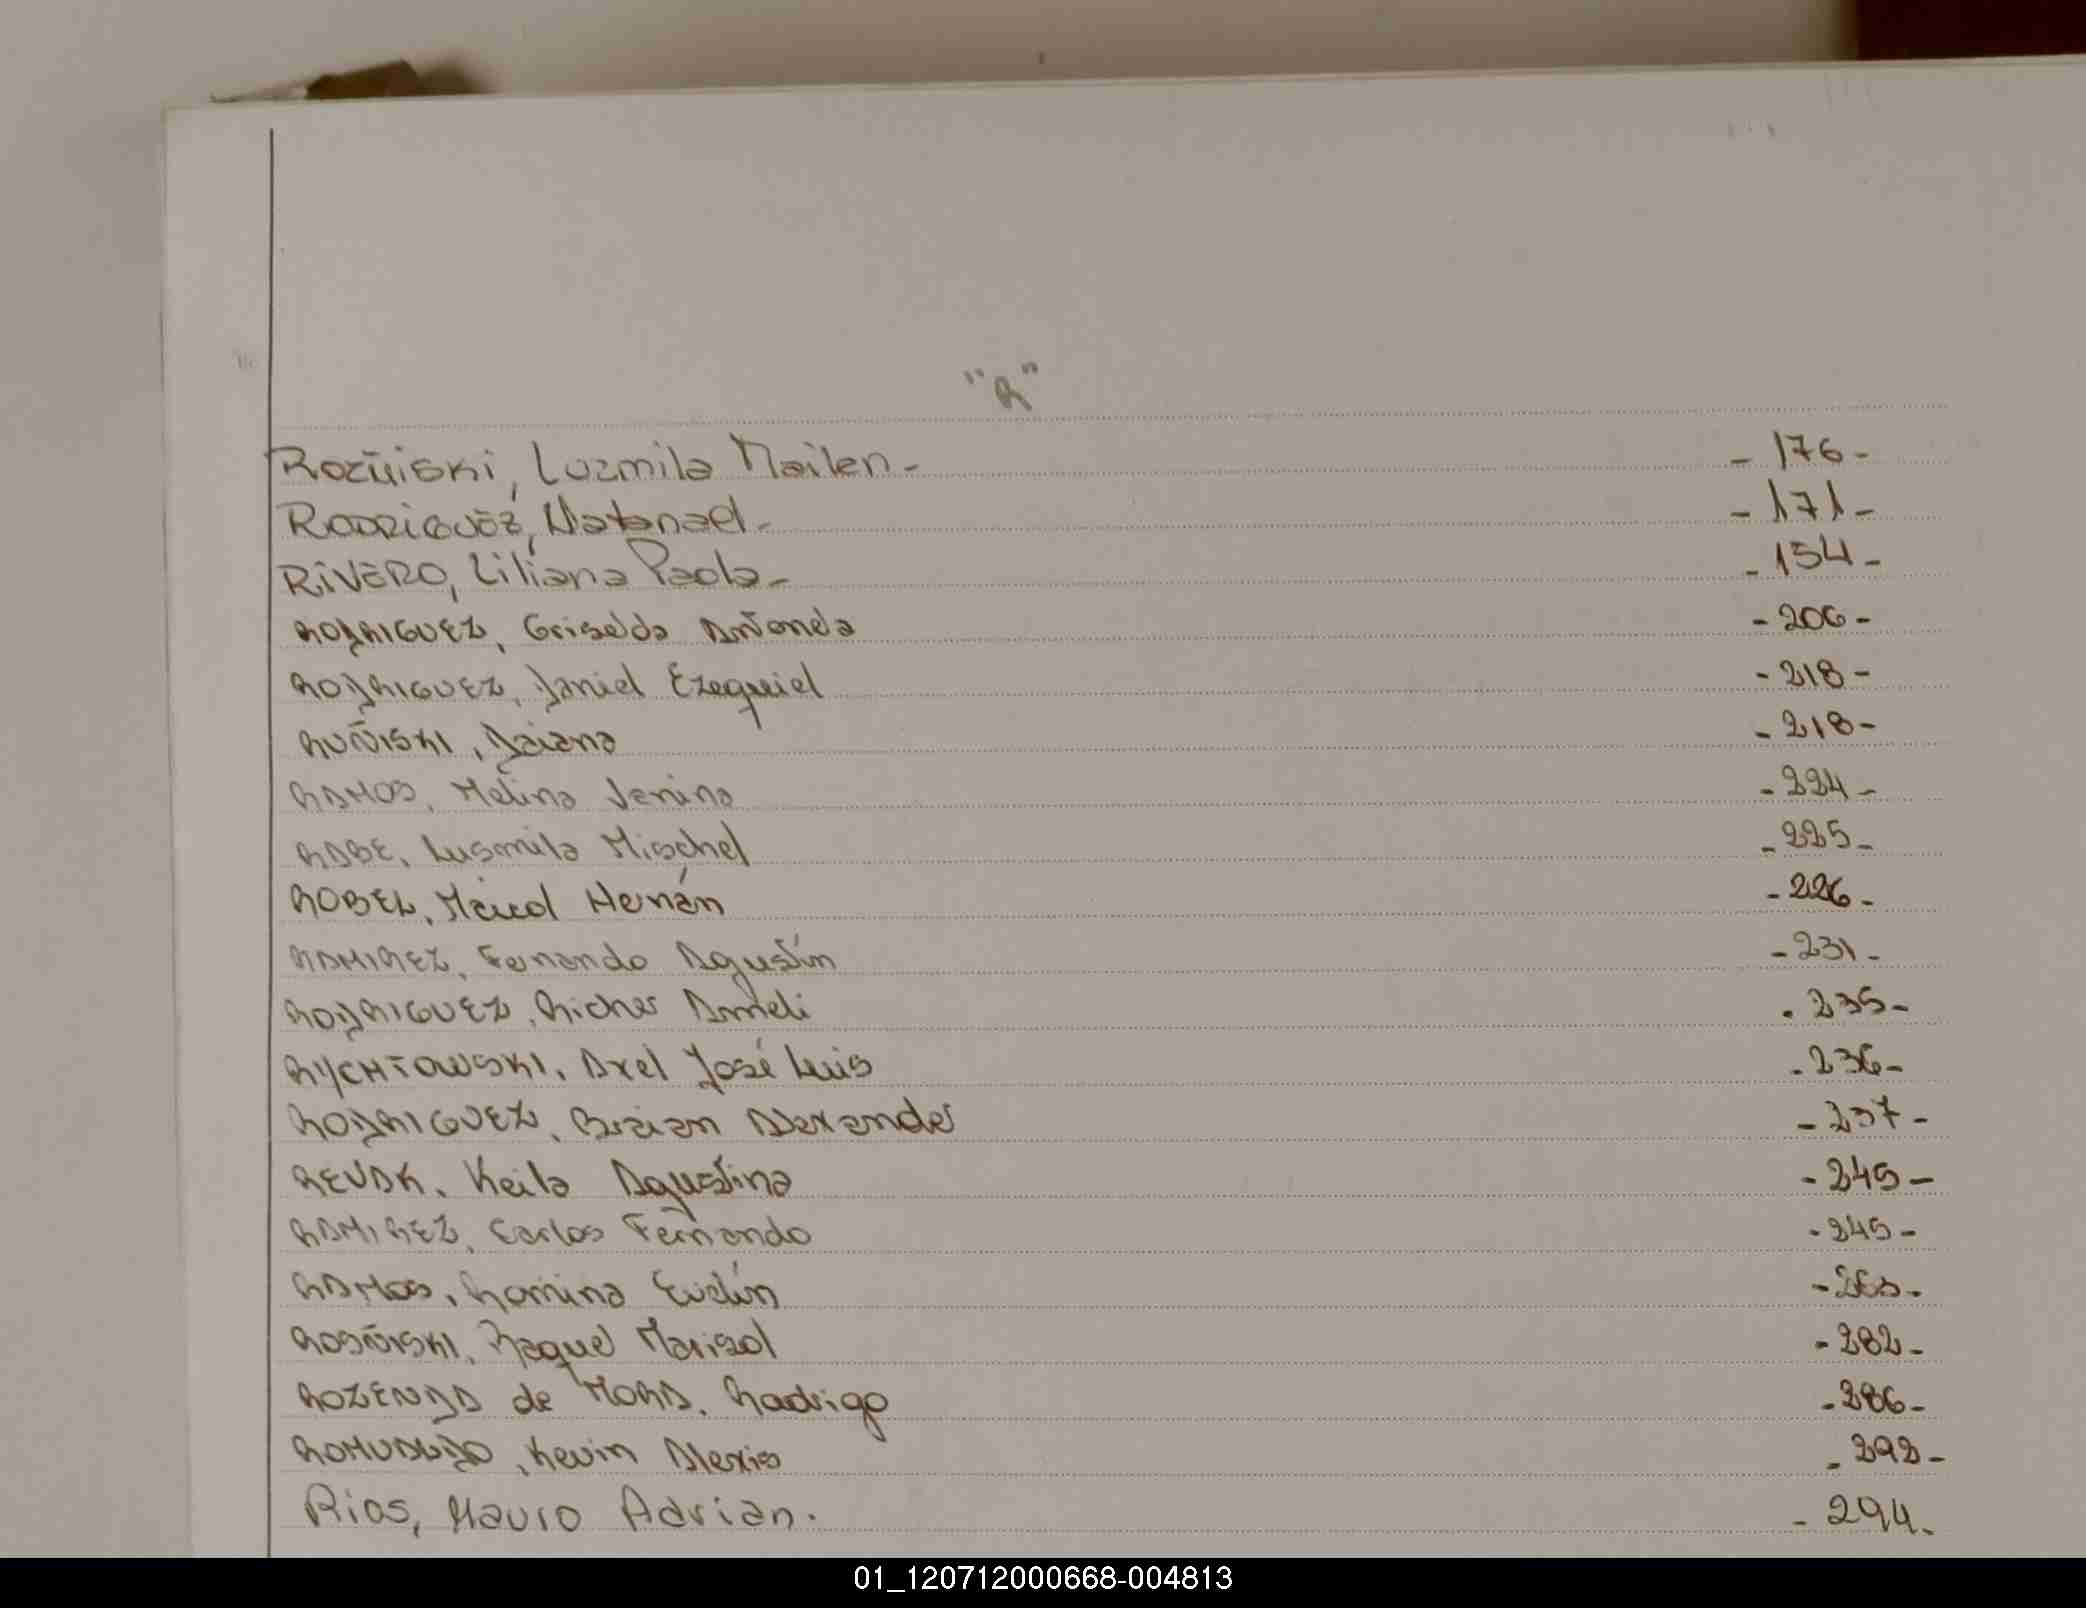 "R"
Rozñiski, Luzmila Mailen- - 176 -
RODRIGUEZ, Natanael- - 171 -
RIVERO, Liliana Paola- - 154 -
RODRIGUEZ, Griselda - 206 -
RODRIGUEZ, Daniel Ezequiel - 218 -
RUÑISKI, Daiana - 218 -
RAMOS, Melina Janina - 224 -
RABE, Lusmila Mischel - 225 -
ROBEL, Maicol Hernán - 226 -
RAMIREZ, Fernando Agustín - 231 -
RODRIGUEZ, Richar - 235 -
RYCHTOWSKI, Axel José Luis - 236 -
RODRIGUEZ, Braian Alexander - 237 -
REVAK, Keila Agustina - 245 -
RAMIREZ, Carlos Fernando - 245 -
RAMOS, Romina Evelín
ROSÑISKI, Raquel Marisol - 282 -
ROZENDA de MORA, Rodrigo - 286 -
ROMUALDO, Kevin Alexis - 292 -
Rios, Mauro Adrian. - 294 -
01_120712000668-004813